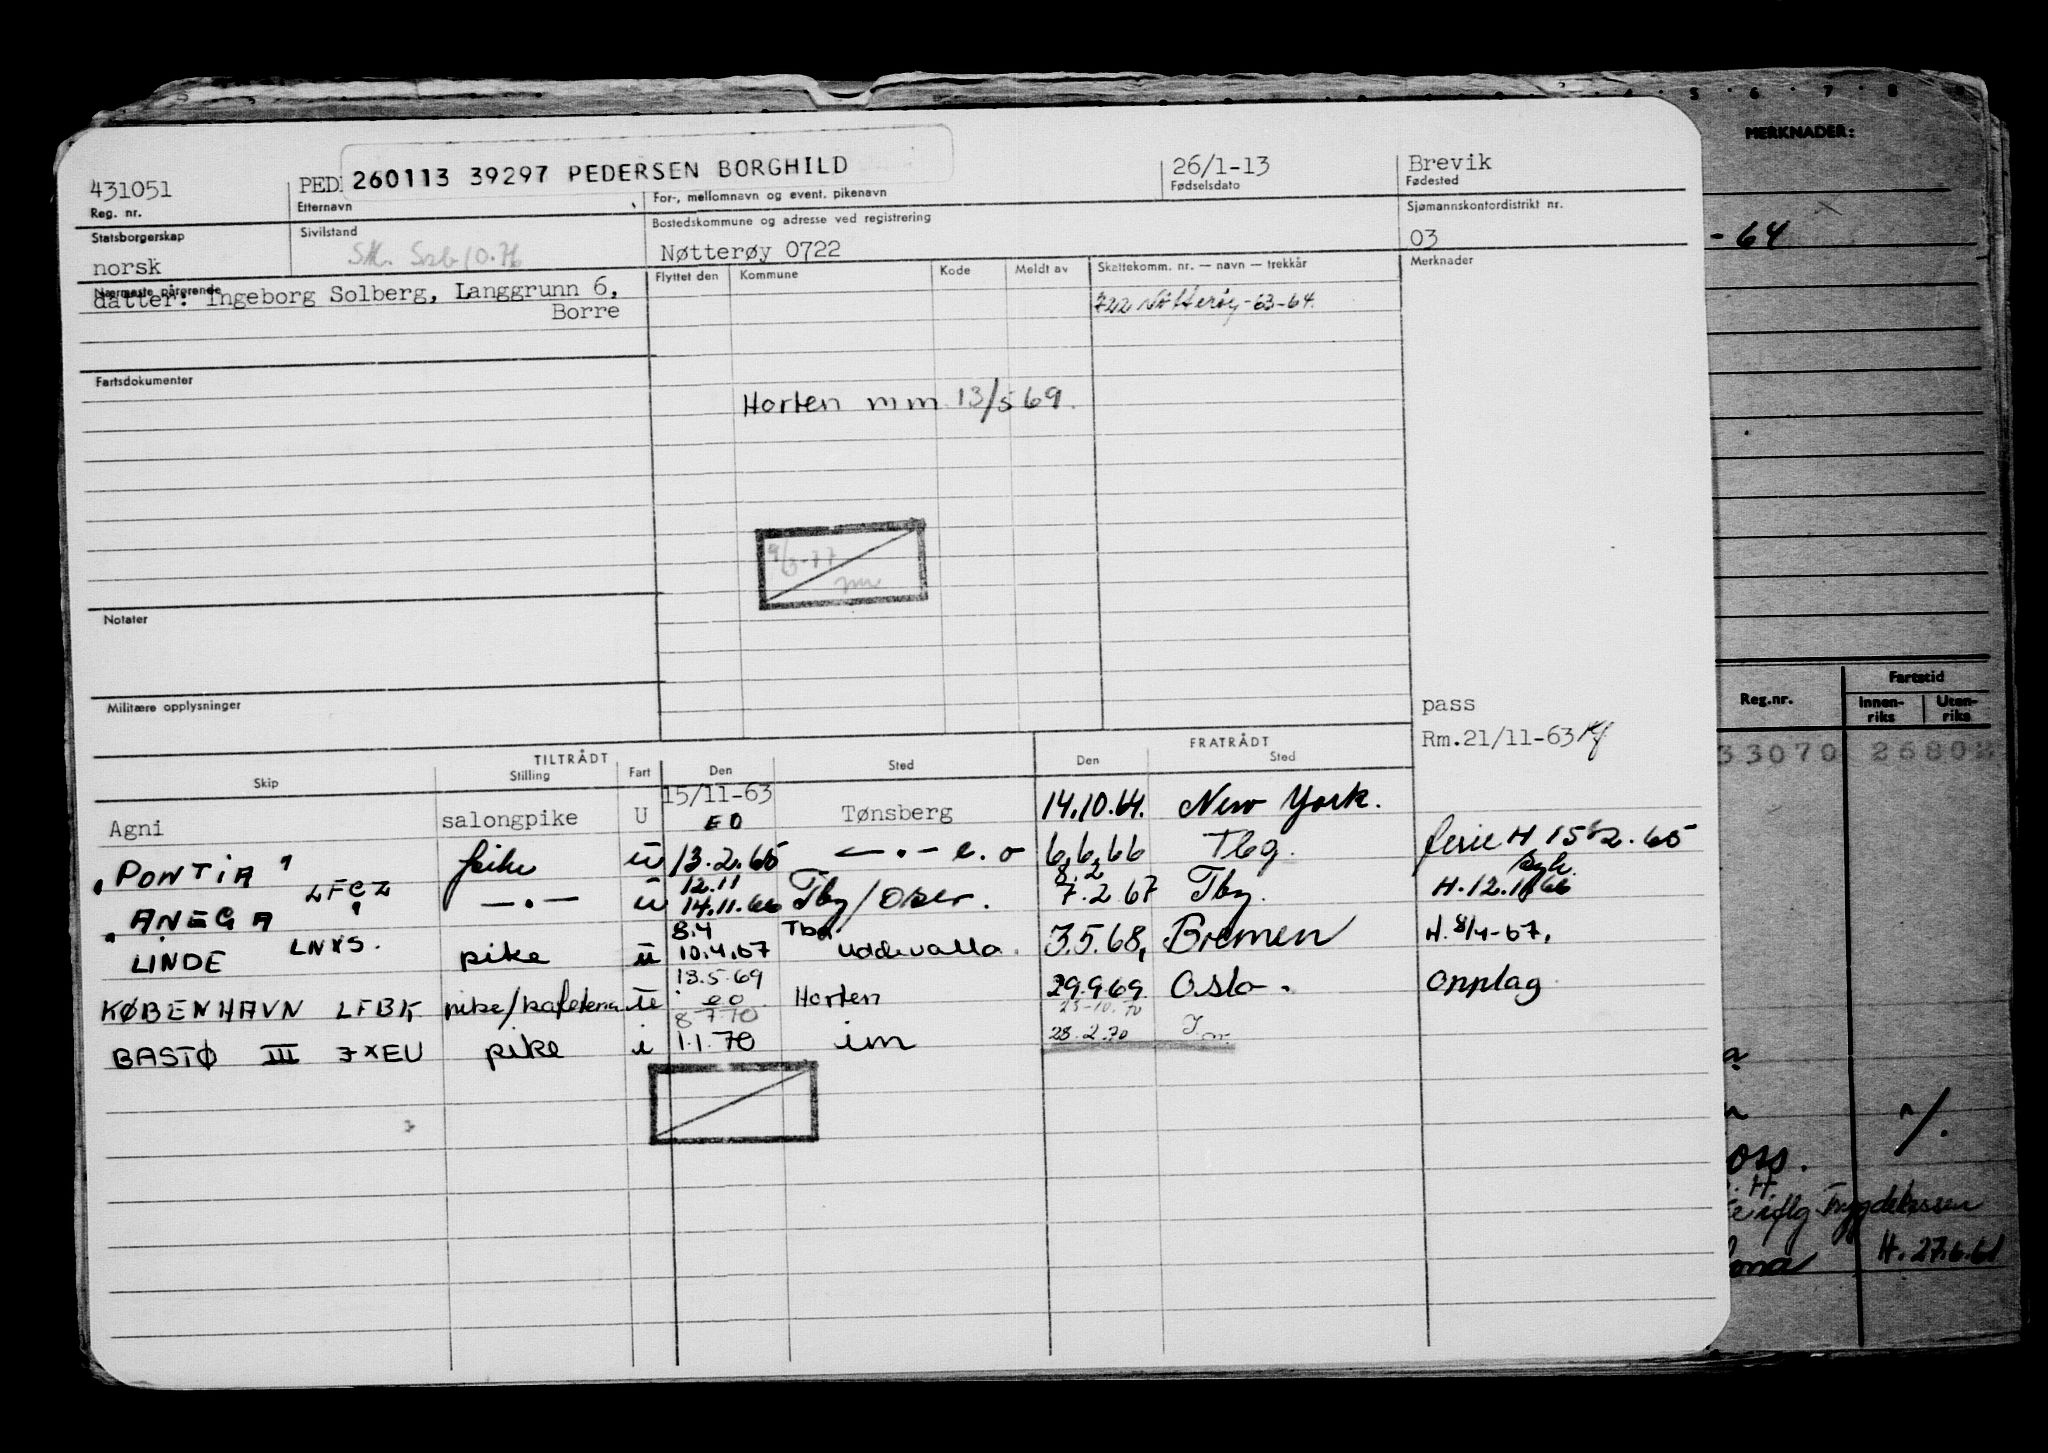 MERKNADER:
431051 PED 260113 39297 PEDERSEN BORGHILD 26/1-13 Brevik
Reg. nr. Etternavn For-, mellomnavn og event. pikenavn Fødselsdato Fødested
Statsborgerskap Sivilstand Bostedskommune og adresse ved registrering Sjømannskontordistrikt nr.
norsk Nøtterøy 0722 03
- 64
Nærmeste pårørende Flyttet den Kommune Kode Meldt av Skattekomm. nr. — navn — trekkår Merknader
datter: Ingeborg Solberg, Langgrunn 6, 722 Nøtterøy-63-64.
Borre
Fartsdokumenter
Horten mm 13/5 69.
Notater
Militære opplysninger
pass
Rm.21/11-63
Reg.nr. Fartstid
Innen-riks Uten-riks
33070 26802
TILTRÅDT FRATRÅDT
Skip Stilling Fart Den Sted Den Sted
Agni salongpike U 15/11-63 EO Tønsberg 14.10.64. New York.
"PONTIA" LFCZ pike U 13.2.65 — . — e.o 6.6.66 Tbg. ferie H 15/2.65
"ANEGA" — . — U 12.11 14.11.66 Tbg/ 8.2 7.2.67 Tbg. H.12.11 66
LINDE LNXS. pike U 8.4 10.4.67 Tbg. Uddevalla. 3.5.68, Bremen H. 8/4-67,
KØBENHAVN LFBK pike/kafeteria U 13.5.69 eo Horten 29.9.69. Oslo. Opplag
8 7.70 23-10.70
BASTØ III JXEU pike i 1.1.70 im 28.2.70
oss.
H
iflg Trygdekassen
H. 27.6.61